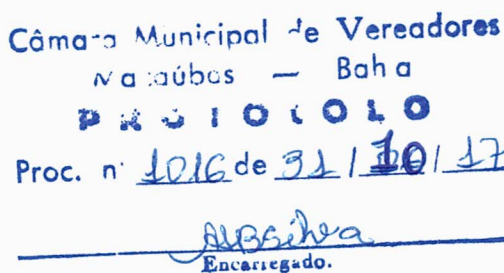 Câmara Municipal de Vereadores
Macaúbas — Bahia
PROTOCOLO
Proc. nº 1016 de 31 / 10 / 17
Encarregado.